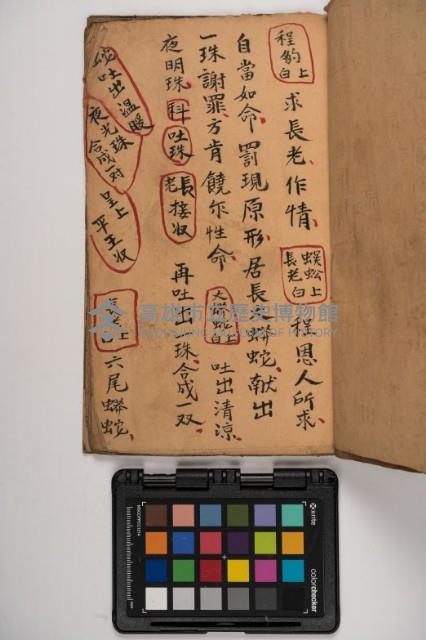 程豹上白 求長老、作情、 蜈蚣上長老白 程恩人所求、
自當如命、罰現原形、居長蟒蛇、献出
一珠謝罪、方肯饒尔性命、 大蛇上白 吐出清凉
夜明珠、科吐珠 長老接収 再吐出珠、合成一双、
吐出溫暖
夜光珠
合成一对 呈上
平王収
上 六尾蟒蛇、
高雄市立歷史博物館
KAOHSIUNG MUSEUM OF HISTORY
x-rite
colorchecker